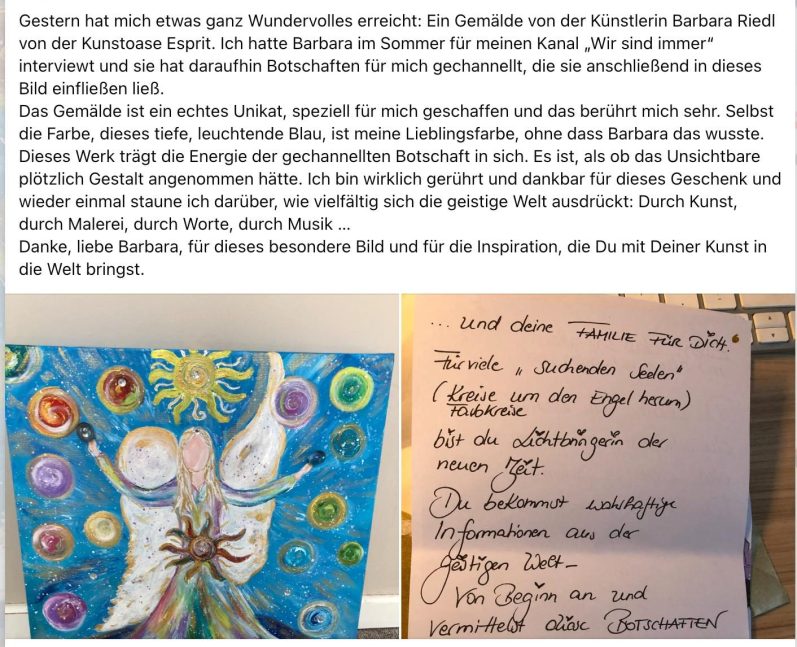 Gestern hat mich etwas ganz Wundervolles erreicht: Ein Gemälde von der Künstlerin Barbara Riedl
von der Kunstoase Esprit. Ich hatte Barbara im Sommer für meinen Kanal „Wir sind immer“
interviewt und sie hat daraufhin Botschaften für mich gechannellt, die sie anschließend in dieses
Bild einfließen ließ.
Das Gemälde ist ein echtes Unikat, speziell für mich geschaffen und das berührt mich sehr. Selbst
die Farbe, dieses tiefe, leuchtende Blau, ist meine Lieblingsfarbe, ohne dass Barbara das wusste.
Dieses Werk trägt die Energie der gechannellten Botschaft in sich. Es ist, als ob das Unsichtbare
plötzlich Gestalt angenommen hätte. Ich bin wirklich gerührt und dankbar für dieses Geschenk und
wieder einmal staune ich darüber, wie vielfältig sich die geistige Welt ausdrückt: Durch Kunst,
durch Malerei, durch Worte, durch Musik ...
Danke, liebe Barbara, für dieses besondere Bild und für die Inspiration, die Du mit Deiner Kunst in
die Welt bringst.
... und deine FAMILIE FÜR DICH.
Für viele „suchenden Seelen"
(Kreise um den Engel herum)
Farbkreise
bist du Lichtbringerin der
neuen Zeit.
Du bekommst wahrhaftige
Informationen aus der
geistigen Welt –
Von Beginn an und
vermittelst diese BOTSCHAFTEN